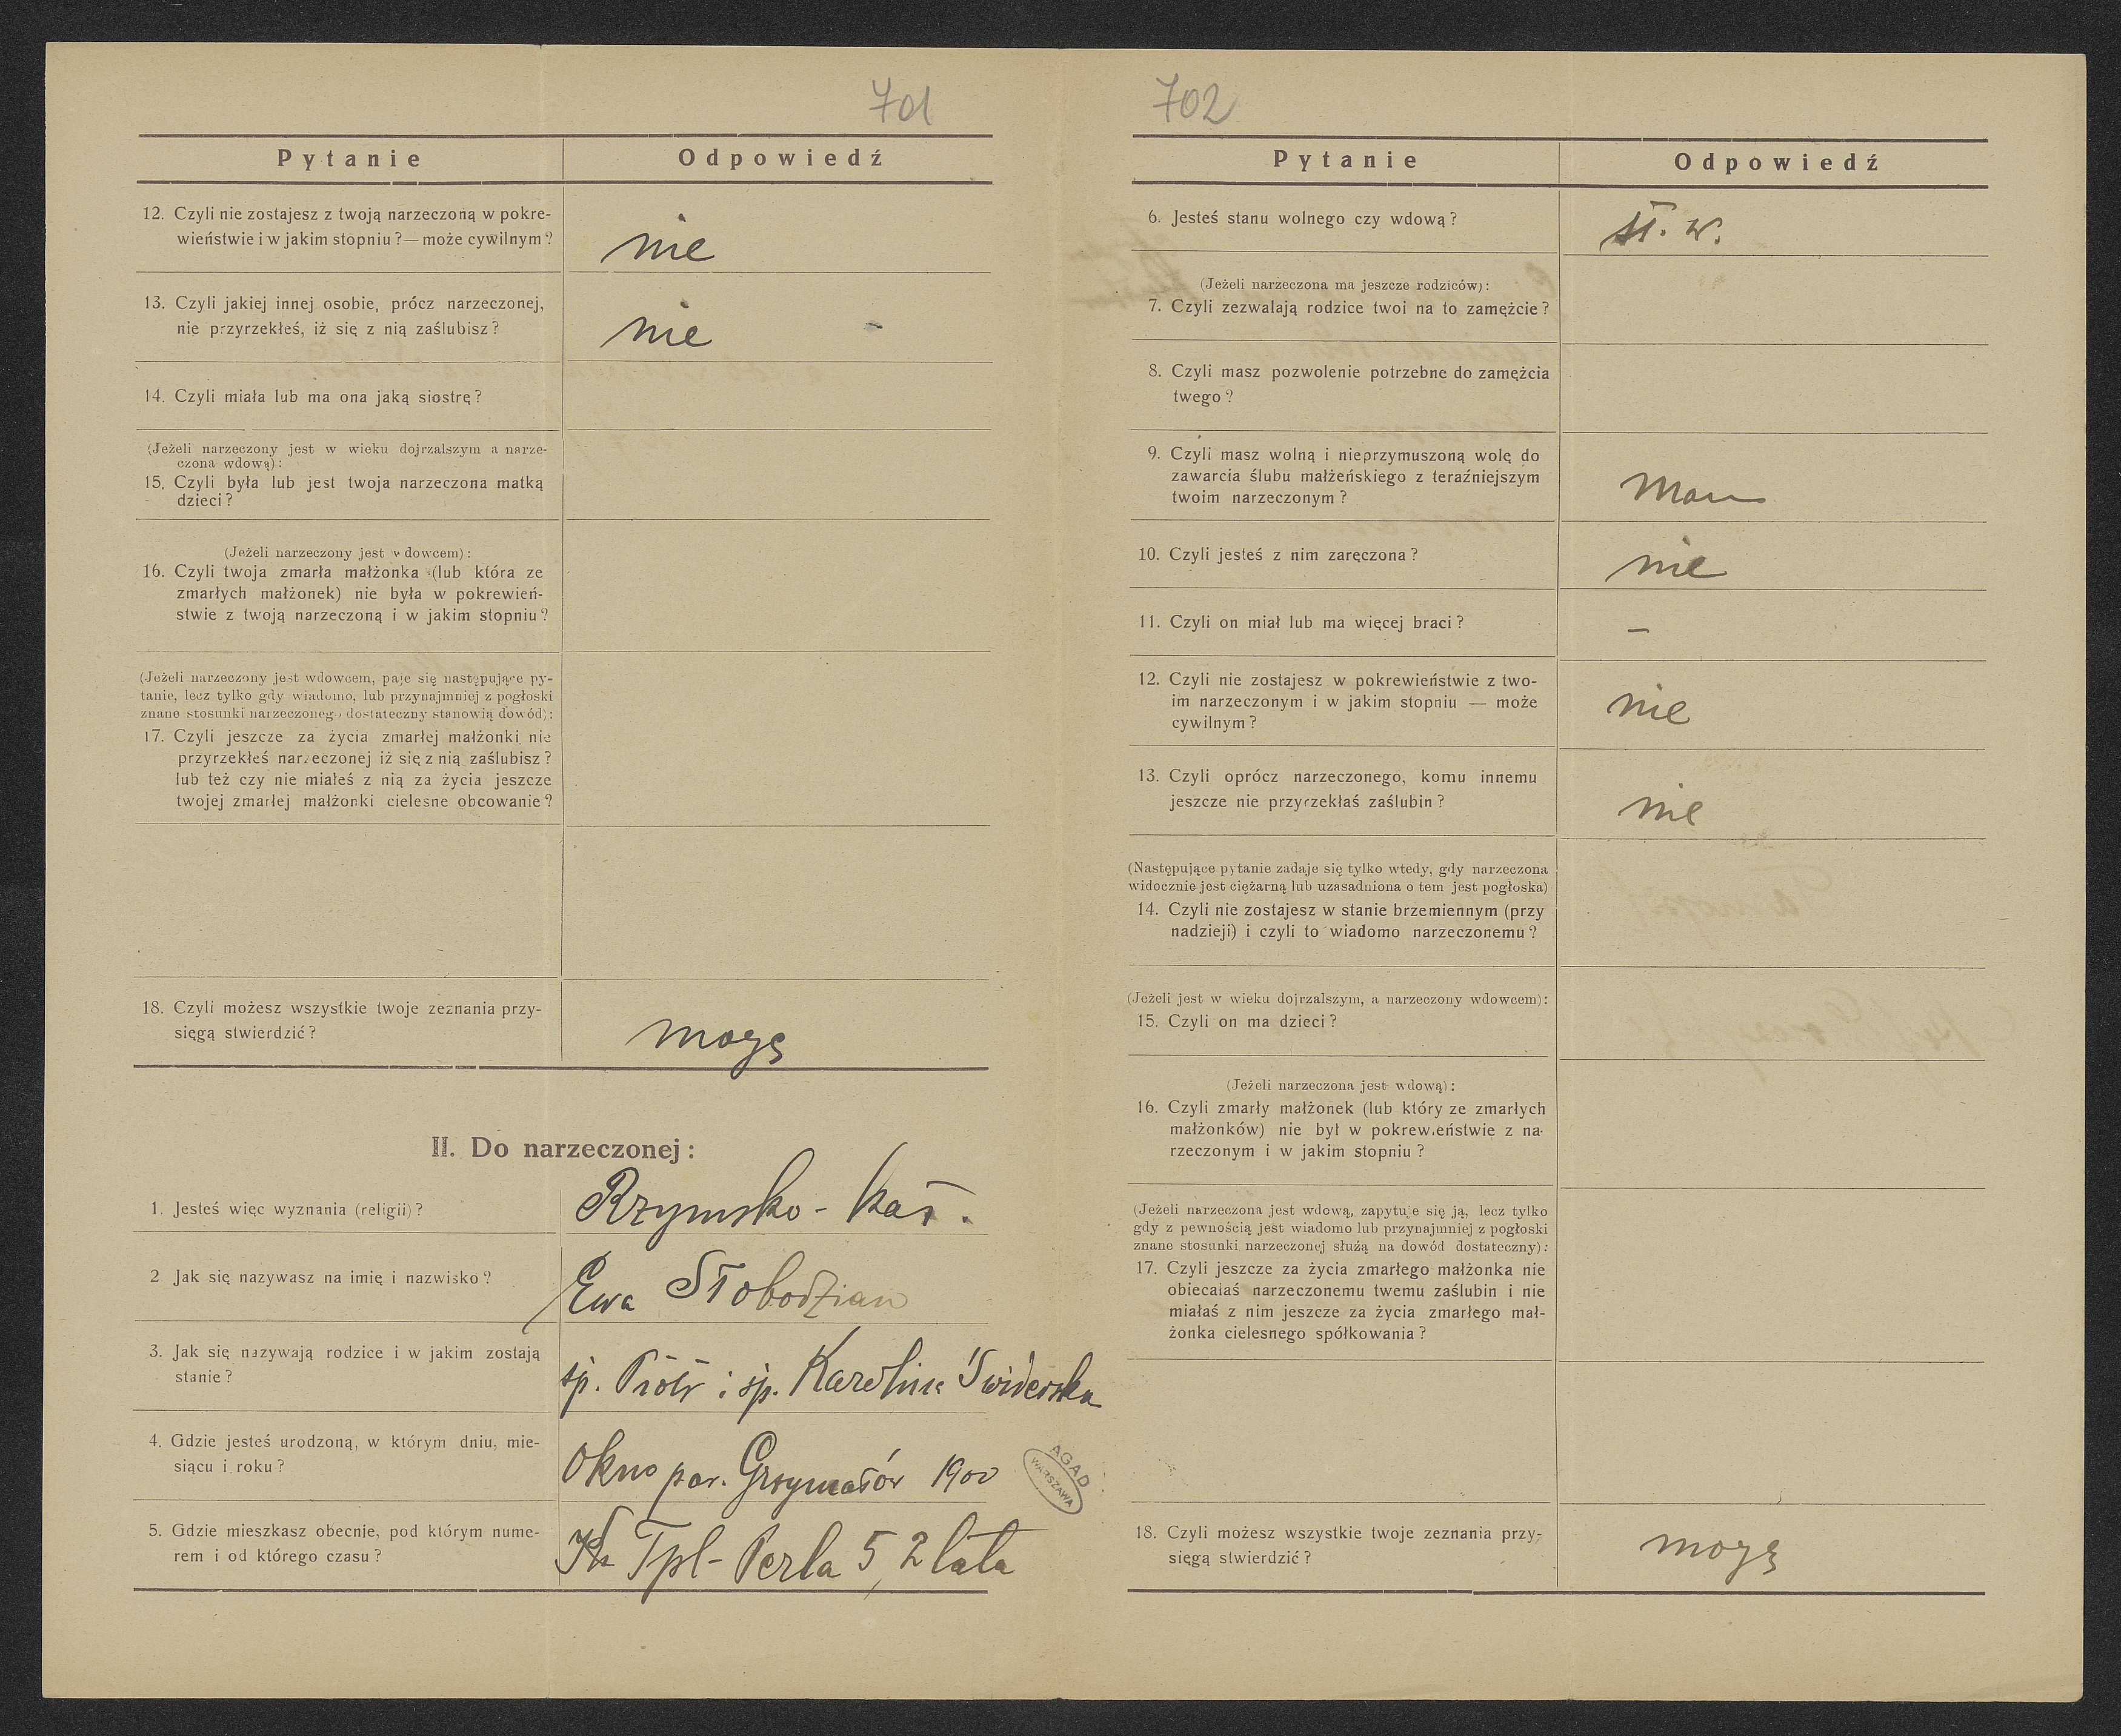 701
Pytanie Odpowiedź
12. Czyli nie zostajesz z twoją narzeczoną w pokre-
wieństwie i w jakim stopniu?—może cywilnym?
nie
13. Czyli jakiej innej osobie, prócz narzeczonej,
nie przyrzekłeś, iż się z nią zaślubisz?
nie
14. Czyli miała lub ma ona jaką siostrę?
(Jeżeli narzeczony jest w wieku dojrzalszym a narze-
czona wdową):
15. Czyli była lub jest twoja narzeczona matką
dzieci?
(Jeżeli narzeczony jest wdowcem):
16. Czyli twoja zmarła małżonka (lub która ze
zmarłych małżonek) nie była w pokrewień-
stwie z twoją narzeczoną i w jakim stopniu?
(Jeżeli narzeczony jest wdowcem, daje się następujące py-
tanie, lecz tylko gdy wiadomo, lub przynajmniej z pogłoski
znane stosunki narzeczonego dostateczny stanowią dowód):
17. Czyli jeszcze za życia zmarłej małżonki nie
przyrzekłeś narzeczonej iż się z nią zaślubisz?
lub też czy nie miałeś z nią za życia jeszcze
twojej zmarłej małżonki cielesne obcowanie?
18. Czyli możesz wszystkie twoje zeznania przy-
sięgą stwierdzić?
mogę
II. Do narzeczonej:
1. Jesteś więc wyznania (religii)?
Rzymsko-kat.
2 Jak się nazywasz na imię i nazwisko?
Ewa Słobodzian
3. Jak się nazywają rodzice i w jakim zostają
stanie?
śp. Piotr i śp. Karolina Świderska
4. Gdzie jesteś urodzoną, w którym dniu, mie-
siącu i roku?
Okno par. Grzymałów 1900
5. Gdzie mieszkasz obecnie, pod którym nume-
rem i od którego czasu?
Tpl- Perla 5, 2 lata
AGAD
WARSZAWA
702
Pytanie Odpowiedź
6. Jesteś stanu wolnego czy wdową?
st. w.
(Jeżeli narzeczona ma jeszcze rodziców):
7. Czyli zezwalają rodzice twoi na to zamężcie?
8. Czyli masz pozwolenie potrzebne do zamężcia
twego?
9. Czyli masz wolną i nieprzymuszoną wolę do
zawarcia ślubu małżeńskiego z teraźniejszym
twoim narzeczonym?
mam
10. Czyli jesteś z nim zaręczona?
nie
11. Czyli on miał lub ma więcej braci?
–
12. Czyli nie zostajesz w pokrewieństwie z two-
im narzeczonym i w jakim stopniu — może
cywilnym?
nie
13. Czyli oprócz narzeczonego, komu innemu
jeszcze nie przyrzekłaś zaślubin?
nie
(Następujące pytanie zadaje się tylko wtedy, gdy narzeczona
widocznie jest ciężarną lub uzasadniona o tem jest pogłoska)
14. Czyli nie zostajesz w stanie brzemiennym (przy
nadzieji) i czyli to wiadomo narzeczonemu?
(Jeżeli jest w wieku dojrzalszym, a narzeczony wdowcem):
15. Czyli on ma dzieci?
(Jeżeli narzeczona jest wdową):
16. Czyli zmarły małżonek (lub który ze zmarłych
małżonków) nie był w pokrewieństwie z na-
rzeczonym i w jakim stopniu?
(Jeżeli narzeczona jest wdową, zapytuje się ją, lecz tylko
gdy z pewnością jest wiadomo lub przynajmniej z pogłoski
znane stosunki narzeczonej służą na dowód dostateczny):
17. Czyli jeszcze za życia zmarłego małżonka nie
obiecałaś narzeczonemu twemu zaślubin i nie
miałaś z nim jeszcze za życia zmarłego mał-
żonka cielesnego spółkowania?
18. Czyli możesz wszystkie twoje zeznania przy-
sięgą stwierdzić?
mogę